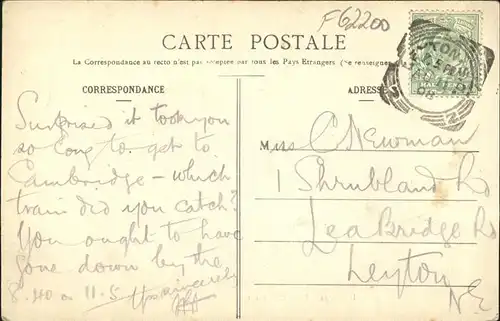 F62200
CARTE POSTALE
La Correspondance au recto n'est pas acceptée par tous les Pays Etrangers (Se renseigner
CORRESPONDANCE
ADRESSE
Surprised it took you
so long to get to
Cambridge - which
train did you catch?
You ought to have
gone down by the
8.40 or 11.5
Miss C Newman
1 Shrubland Rd
Lea Bridge Rd
Leyton
N.E